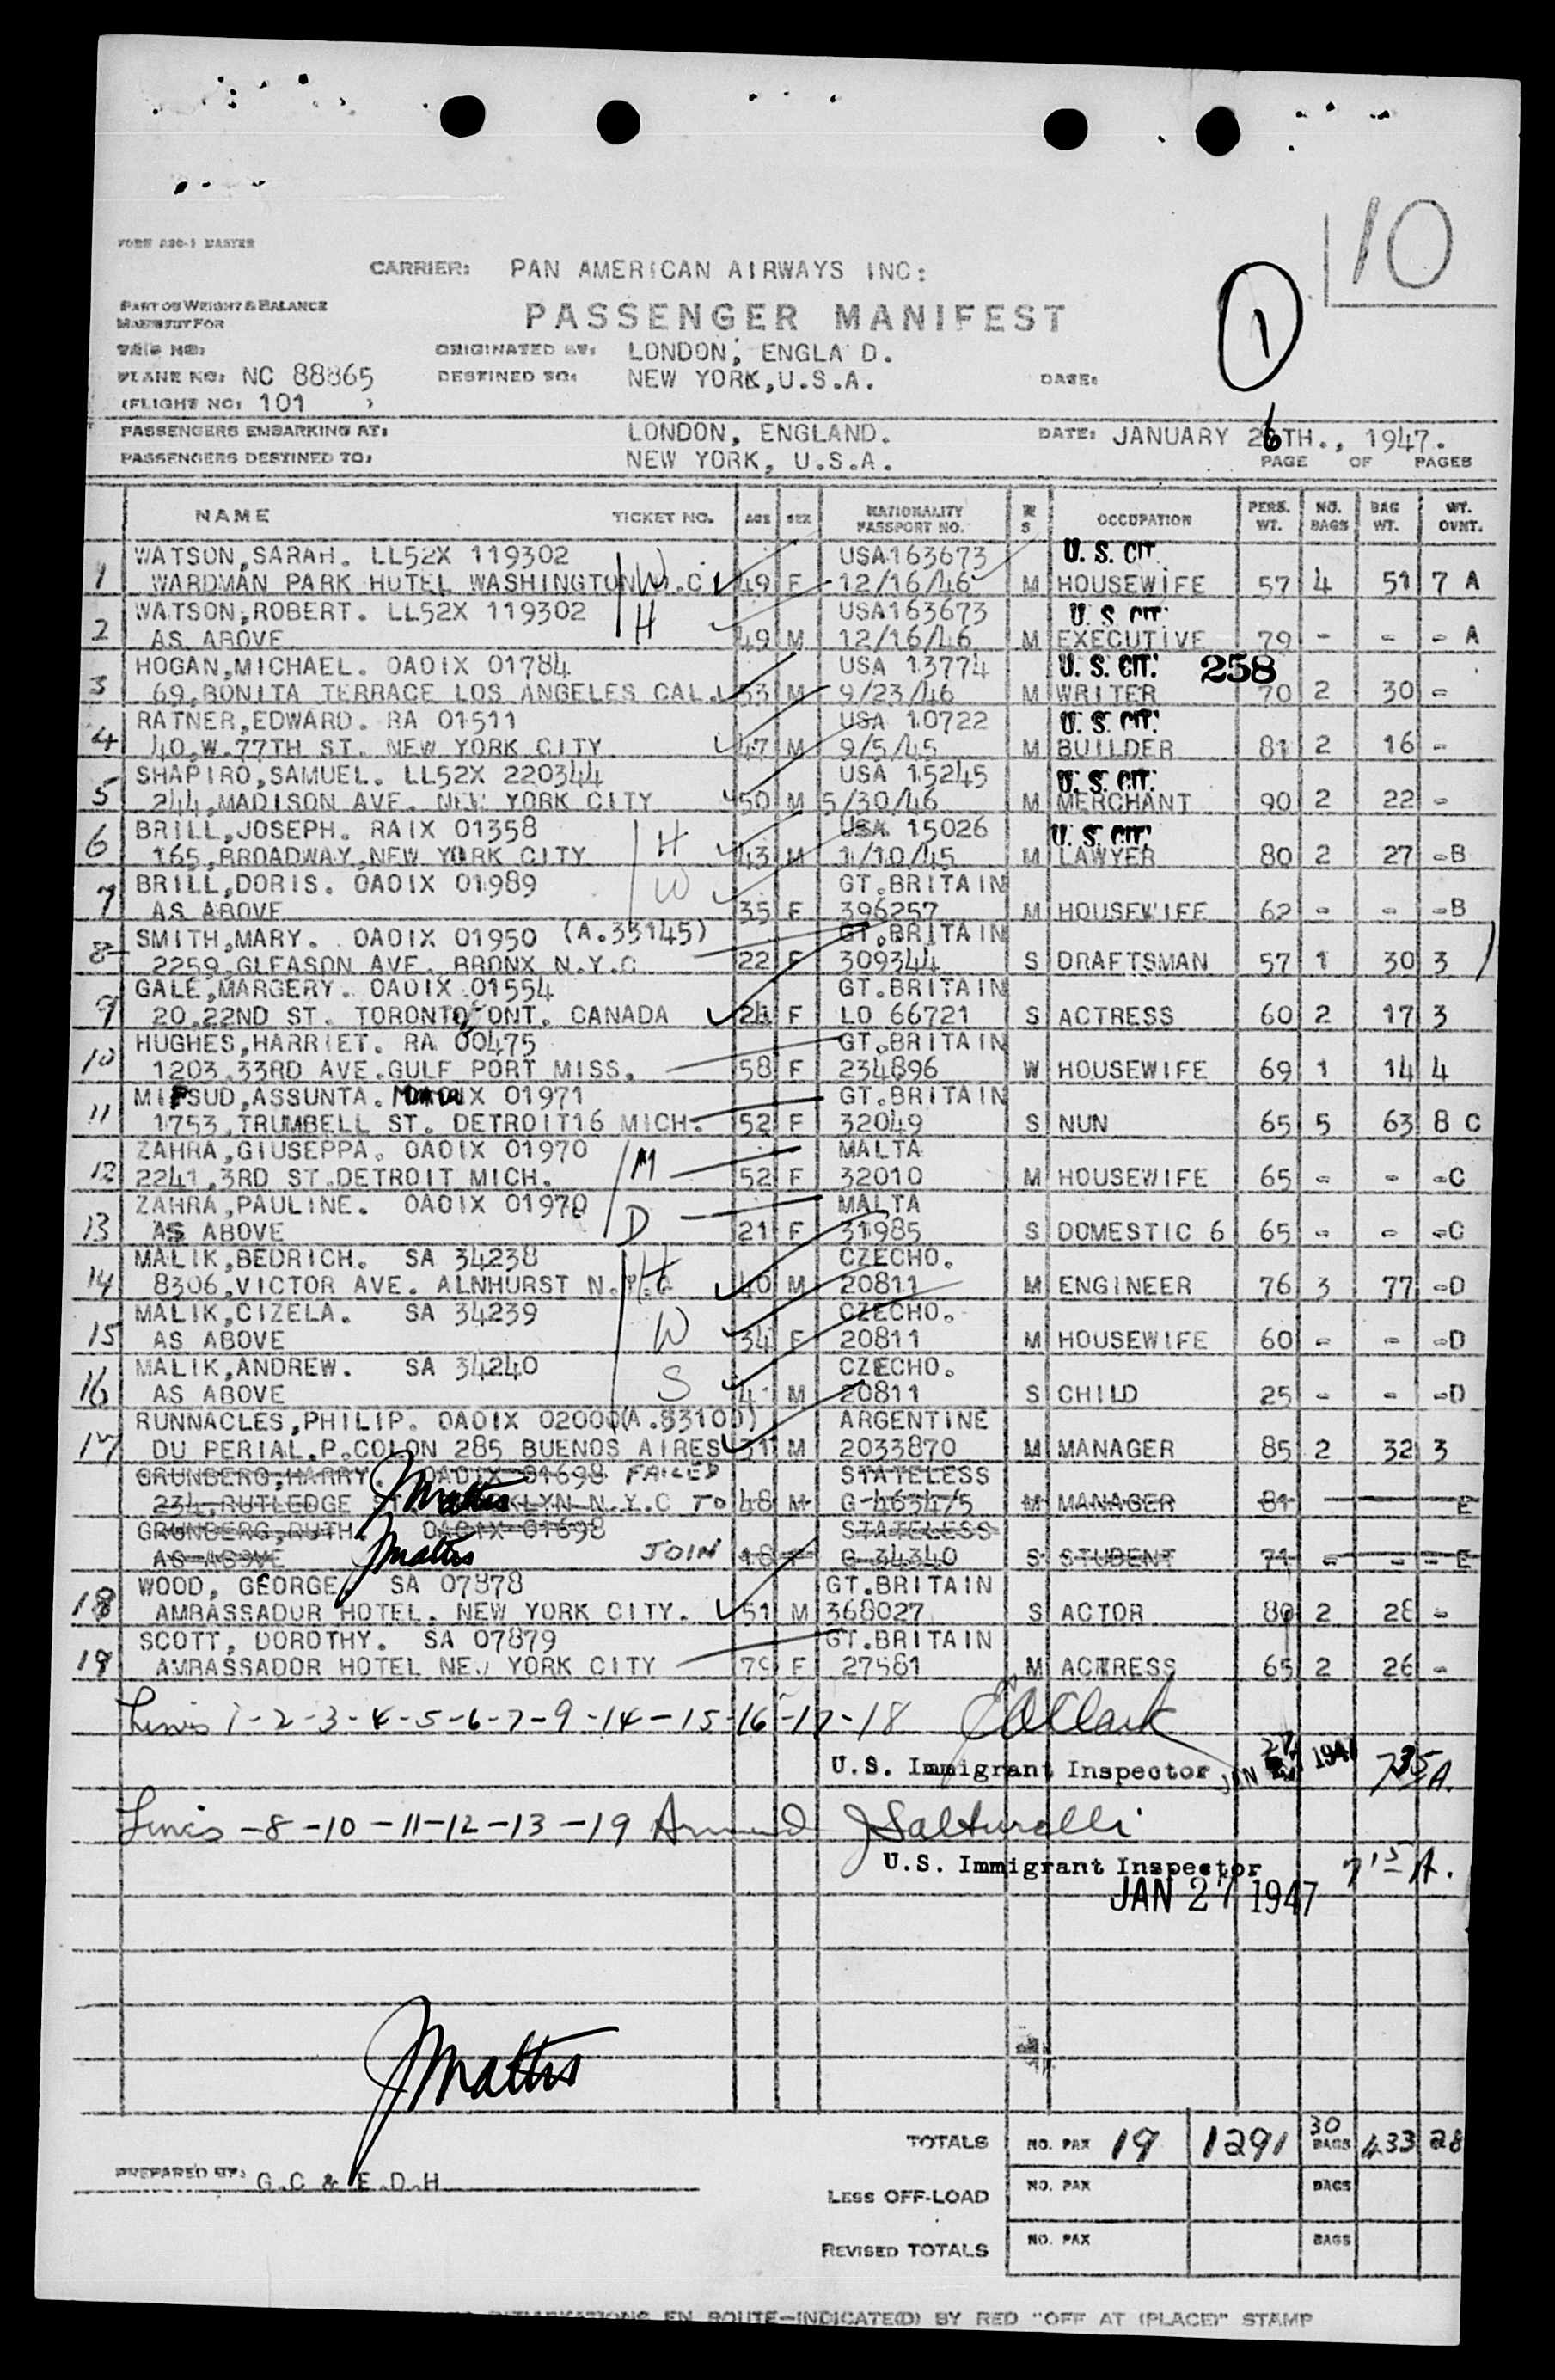 10
FORM ABC-1 MASTER
CARRIER: PAN AMERICAN AIRWAYS INC:
PART OF WEIGHT & BALANCE
MANIFEST FOR
PASSENGER MANIFEST
1
TRIP NO:
ORIGINATED AT: LONDON, ENGLA D.
PLANE NO: NC 88865
DESTINED TO: NEW YORK,U.S.A.
DATE:
(FLIGHT NO: 101 )
PASSENGERS EMBARKING AT: LONDON, ENGLAND. DATE: JANUARY 26TH., 1947.
PASSENGERS DESTINED TO: NEW YORK, U.S.A. PAGE OF PAGES
NAME TICKET NO. AGE SEX NATIONALITY PASSPORT NO. M S OCCUPATION PERS. WT. NO. BAGS BAG WT. WT. OVNT.
WATSON,SARAH. LL52X 119302 USA163673 U.S. CIT.
1 WARDMAN PARK HOTEL WASHINGTON .C W 49 F 12/16/46 M HOUSEWIFE 57 4 51 7 A
WATSON,ROBERT. LL52X 119302 USA163673 U.S. CIT.
2 AS ABOVE H 49 M 12/16/46 M EXECUTIVE 79 - - - A
HOGAN,MICHAEL. OAOIX 01784 USA 13774 U.S. CIT. 258
3 69,BONITA TERRACE LOS ANGELES CAL. 53 M 9/23/46 M WRITER 70 2 30 -
RATNER,EDWARD. RA 01511 USA 10722 U.S. CIT.
4 40,W.77TH ST. NEW YORK CITY 47 M 9/5/45 M BUILDER 81 2 16 -
SHAPIRO,SAMUEL. LL52X 220344 USA 15245 U.S. CIT.
5 244,MADISON AVE. NEW YORK CITY 50 M 5/30/46 M MERCHANT 90 2 22 -
BRILL,JOSEPH. RAIX 01358 USA 15026 U.S. CIT.
6 165,BROADWAY,NEW YORK CITY H 43 M 1/10/45 M LAWYER 80 2 27 -B
BRILL,DORIS. OAOIX 01989 GT.BRITAIN
7 AS ABOVE W 35 F 396257 M HOUSEWIFE 62 - - -B
SMITH,MARY. OAOIX 01950 (A.33145) GT.BRITAIN
8 2259,GLEASON AVE. BRONX N.Y.C 22 F 309344 S DRAFTSMAN 57 1 30 3
GALE,MARGERY. OAOIX 01554 GT.BRITAIN
9 20.22ND ST. TORONTO ONT. CANADA 24 F LO 66721 S ACTRESS 60 2 17 3
HUGHES,HARRIET. RA 00475 GT.BRITAIN
10 1203.33RD AVE.GULF PORT MISS. 58 F 234896 W HOUSEWIFE 69 1 14 4
MIFSUD,ASSUNTA. IX 01971 GT.BRITAIN
11 1753,TRUMBELL ST. DETROIT16 MICH. 52 F 32049 S NUN 65 5 63 8 C
ZAHRA,GIUSEPPA. OAOIX 01970 MALTA
12 2241,3RD ST.DETROIT MICH. M 52 F 32010 M HOUSEWIFE 65 - - -C
ZAHRA,PAULINE. OAOIX 01970 MALTA
13 AS ABOVE D 21 F 31985 S DOMESTIC 6 65 - - -C
MALIK,BEDRICH. SA 34238 CZECHO.
14 8306,VICTOR AVE. ALNHURST N.Y.C H 40 M 20811 M ENGINEER 76 3 77 -D
MALIK,CIZELA. SA 34239 CZECHO.
15 AS ABOVE W 34 F 20811 M HOUSEWIFE 60 - - -D
MALIK,ANDREW. SA 34240 CZECHO.
16 AS ABOVE S 4 M 20811 S CHILD 25 - - -D
RUNNACLES,PHILIP. OAOIX 02000(A.33100) ARGENTINE
17 DU PERIAL.P.COLON 285 BUENOS AIRES 31 M 2033870 M MANAGER 85 2 32 3
GRUNBERG,HARRY. OAOIX 01698 FAILED STATELESS
234,RUTLEDGE ST. KLYN N.Y.C TO 48 M G 463475 M MANAGER 81 E
JMattis
GRUNBERG,RUTH. OAOIX 01698 STATELESS
AS ABOVE JMattis JOIN 18 F G 34340 S STUDENT 71 - - - E
WOOD, GEORGE. SA 07878 GT.BRITAIN
18 AMBASSADOR HOTEL. NEW YORK CITY. 51 M 368027 S ACTOR 80 2 28 -
SCOTT, DOROTHY. SA 07879 GT.BRITAIN
19 AMBASSADOR HOTEL NEW YORK CITY 79 F 27581 M ACTRESS 65 2 26 -
Lines 1-2-3-4-5-6-7-9-14-15-16-17-18 Clark
U.S. Immigrant Inspector JAN 27 1947 735 A.
Lines -8-10-11-12-13-19 Armand J Salturelli
U.S. Immigrant Inspector 715 A.
JAN 27 1947
JMattis
TOTALS NO. PAX 19 1291 30 BAGS 433 28
PREPARED BY: G.C & E.D.H
LESS OFF-LOAD NO. PAX BAGS
REVISED TOTALS NO. PAX BAGS
EN ROUTE—INDICATE(D) BY RED "OFF AT (PLACE)" STAMP